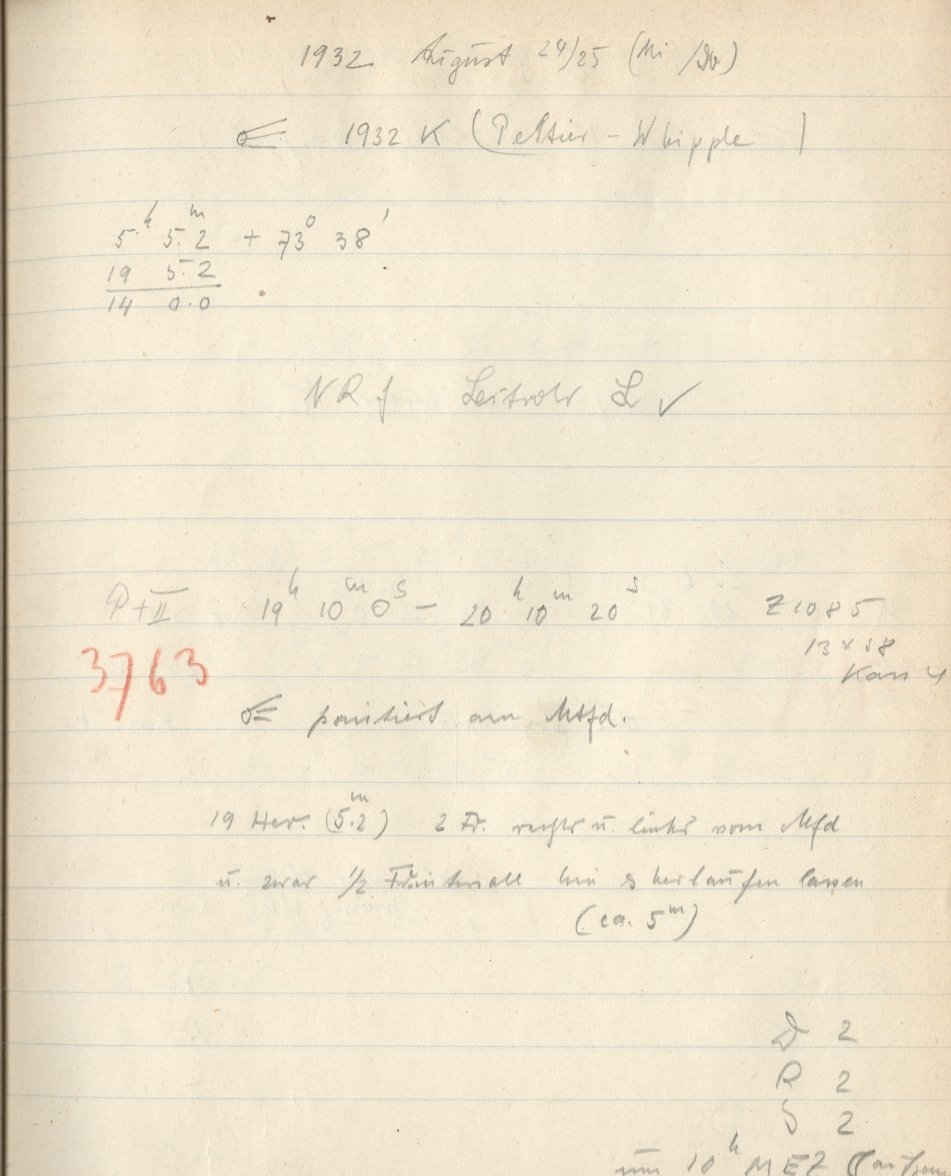 1932 August 24/25 (Mi/Do)
☄ 1932 K (Peltier-Whipple)
5.ʰ 5.ᵐ2 + 73° 38'
19 5.2
14 0.0
NR f Leitrohr L ✓
P+II 19ʰ 10ᵐ 0ˢ - 20ʰ 10ᵐ 20ˢ Z1085
13 x 18
3763 Kass 4
☄ pointiert am Mtfd.
19 Her. (5.ᵐ2) 2 Tr. rechts u. links vom Mfd
u. zwar 1/2 hin & herlaufen lassen
(ca. 5ᵐ)
D 2
R 2
S 2
um 10ʰ MEZ